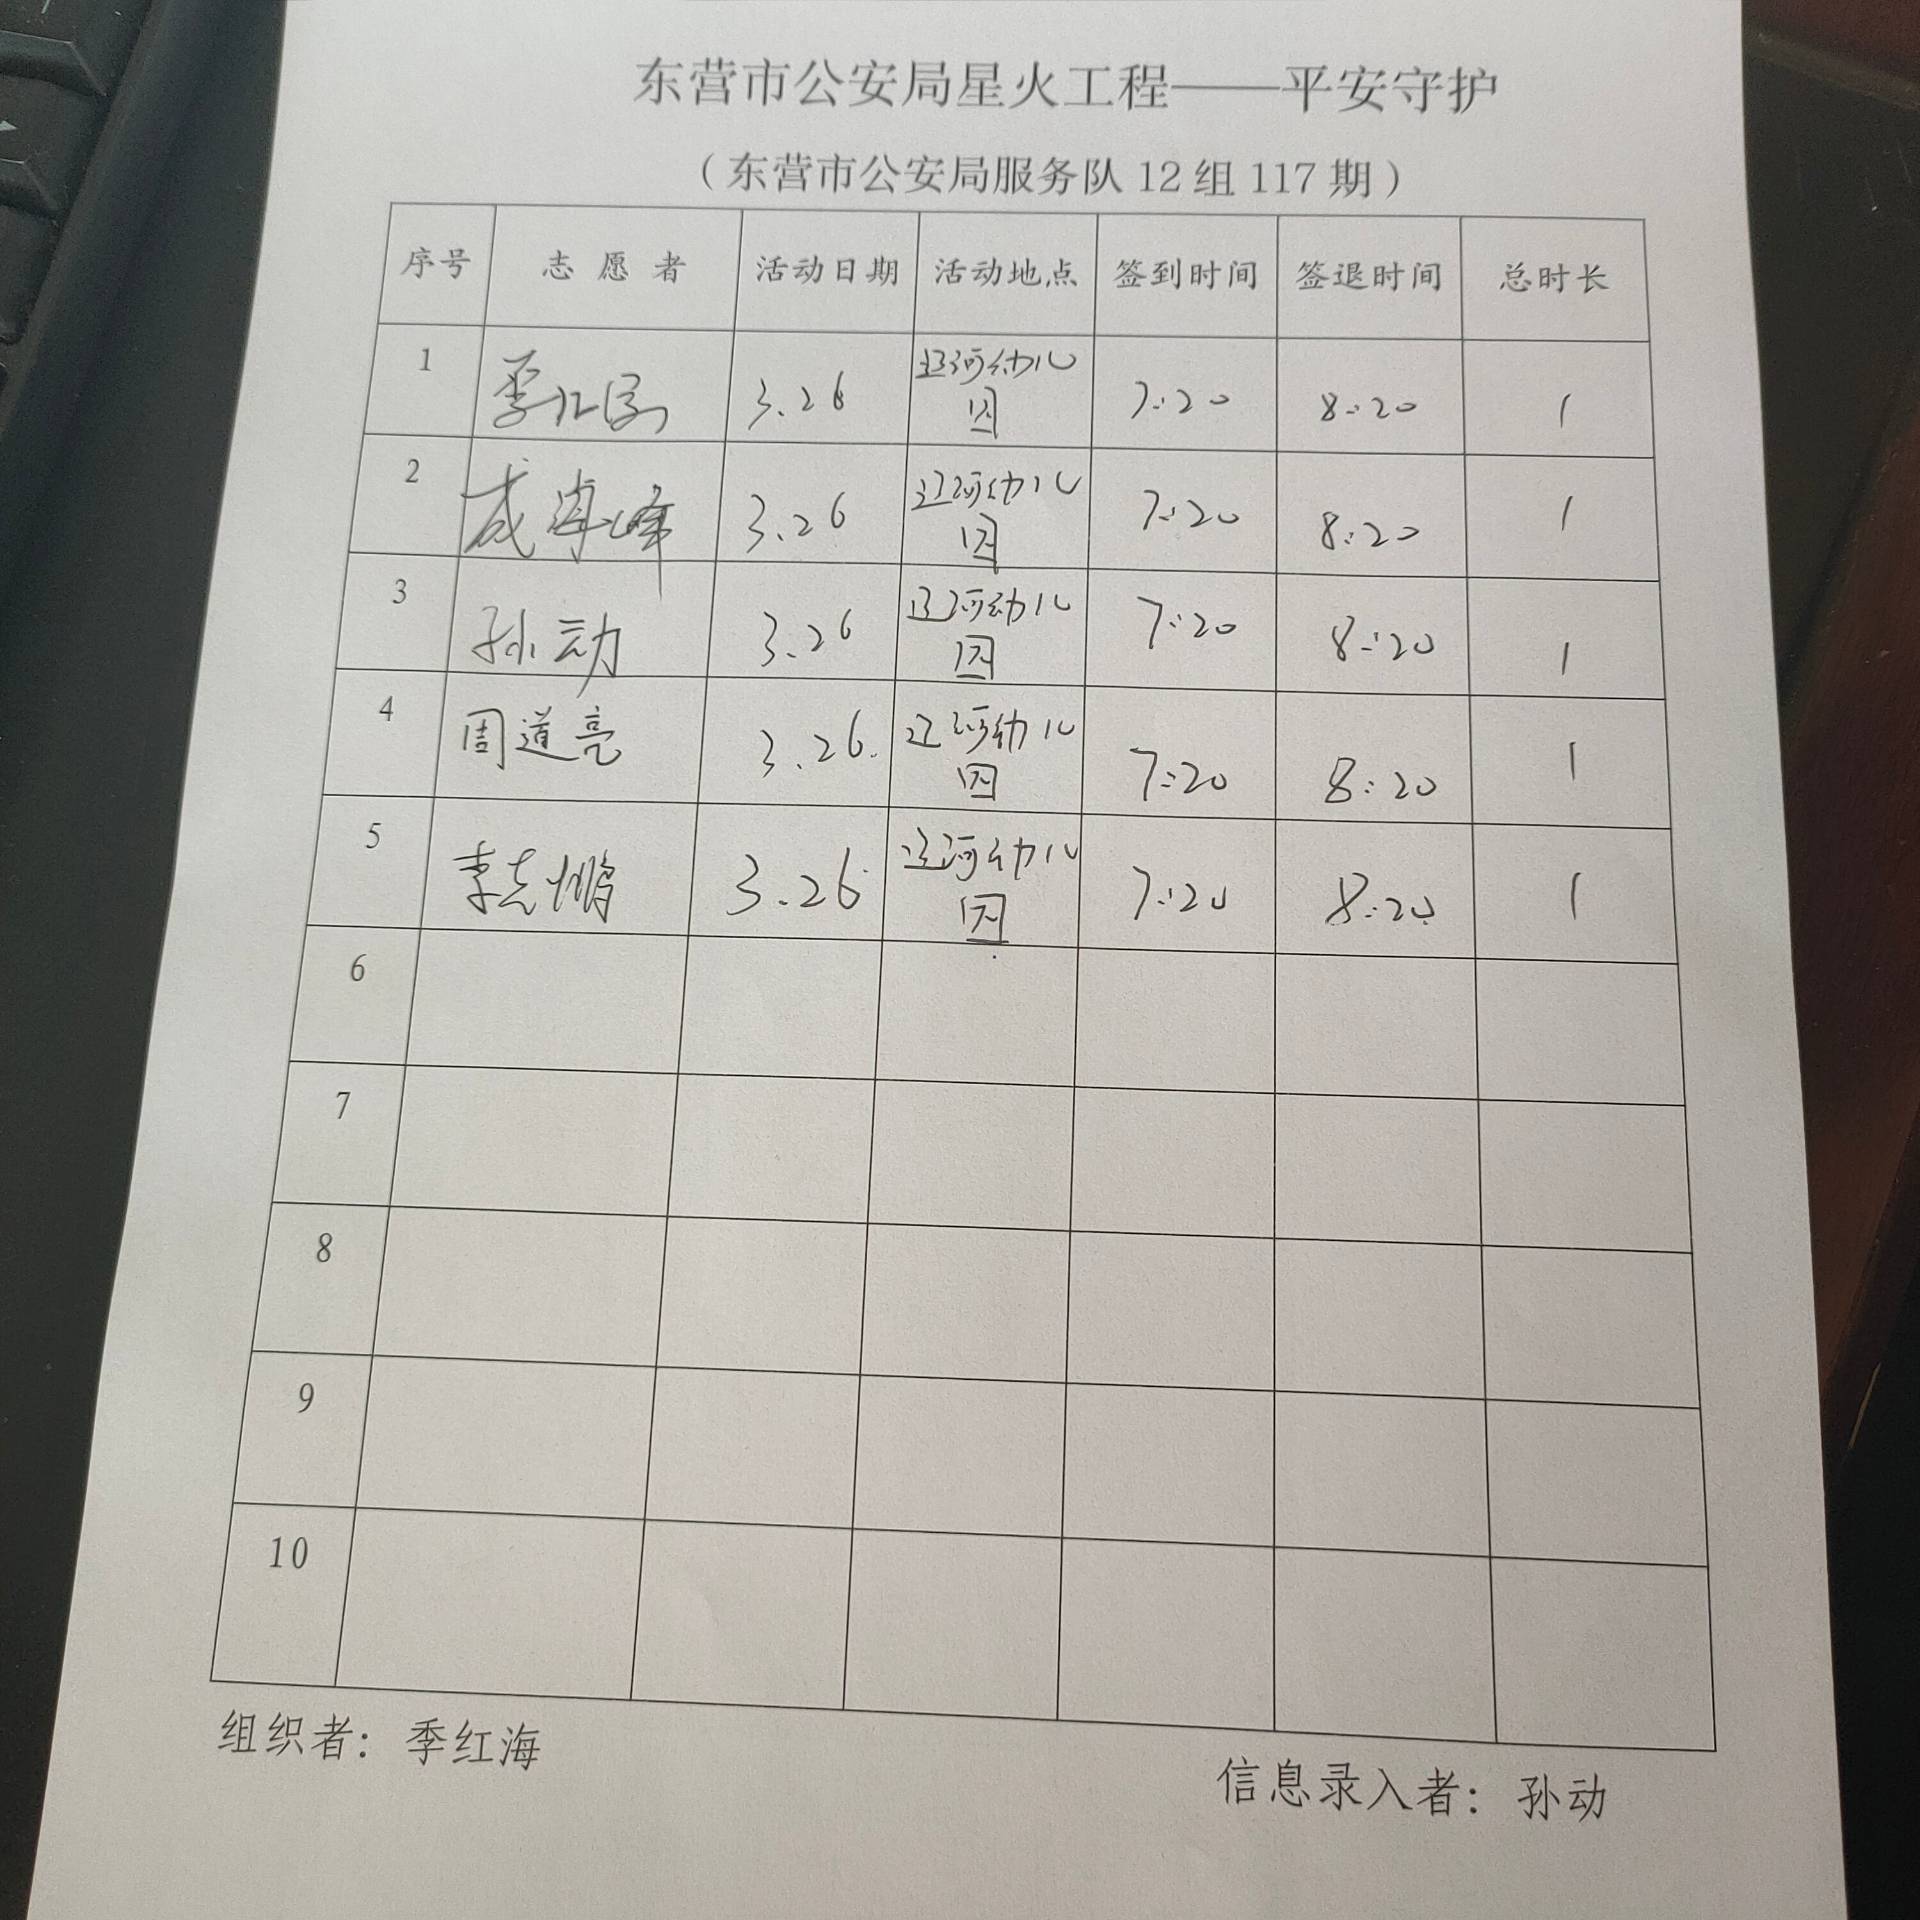 东营市公安局星火工程——平安守护
（东营市公安局服务队 12 组 117 期）
序号 志愿者 活动日期 活动地点 签到时间 签退时间 总时长
1 3.26 河幼儿园 7:20 8:20 1
2 3.26 河幼儿园 7:20 8:20 1
3 孙动 3.26 河幼儿园 7:20 8:20 1
4 周道亮 3.26. 河幼儿园 7:20 8:20 1
5 李志鹏 3.26 河幼儿园 7:20 8:20 1
6
7
8
9
10
组织者：季红海
信息录入者：孙动